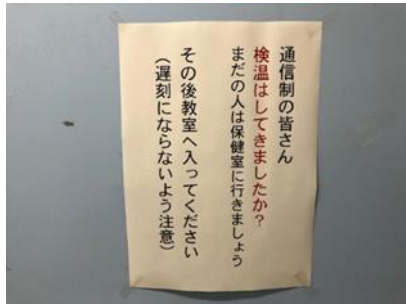 通信制の皆さん
検温はしてきましたか?
まだの人は保健室に行きましょう
その後教室へ入ってください
(遅刻にならないよう注意)